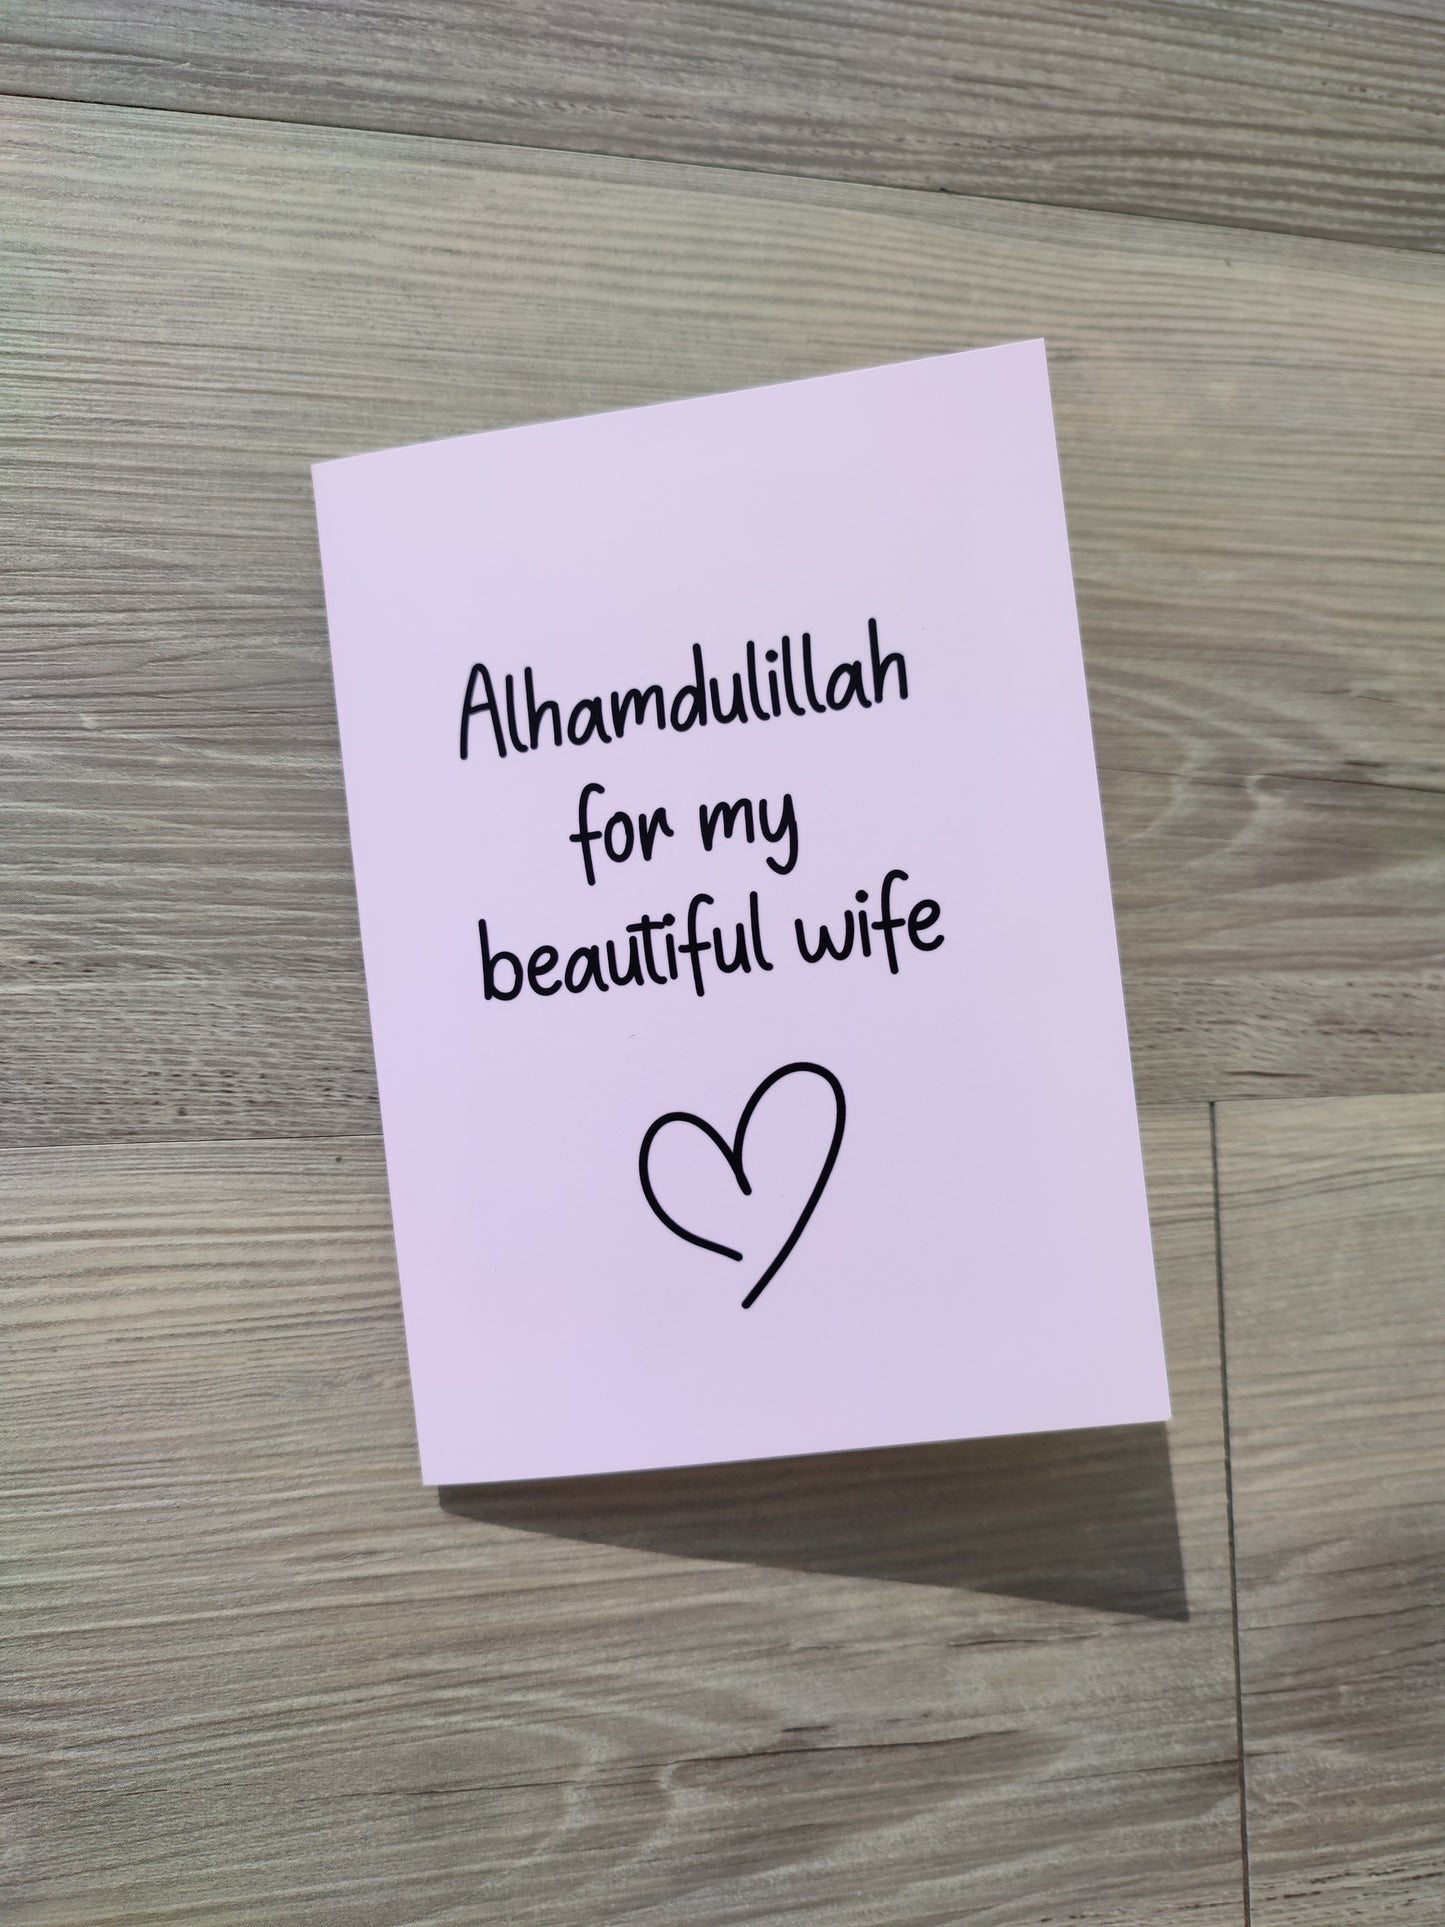 Alhamdulillah
for my
beautiful wife